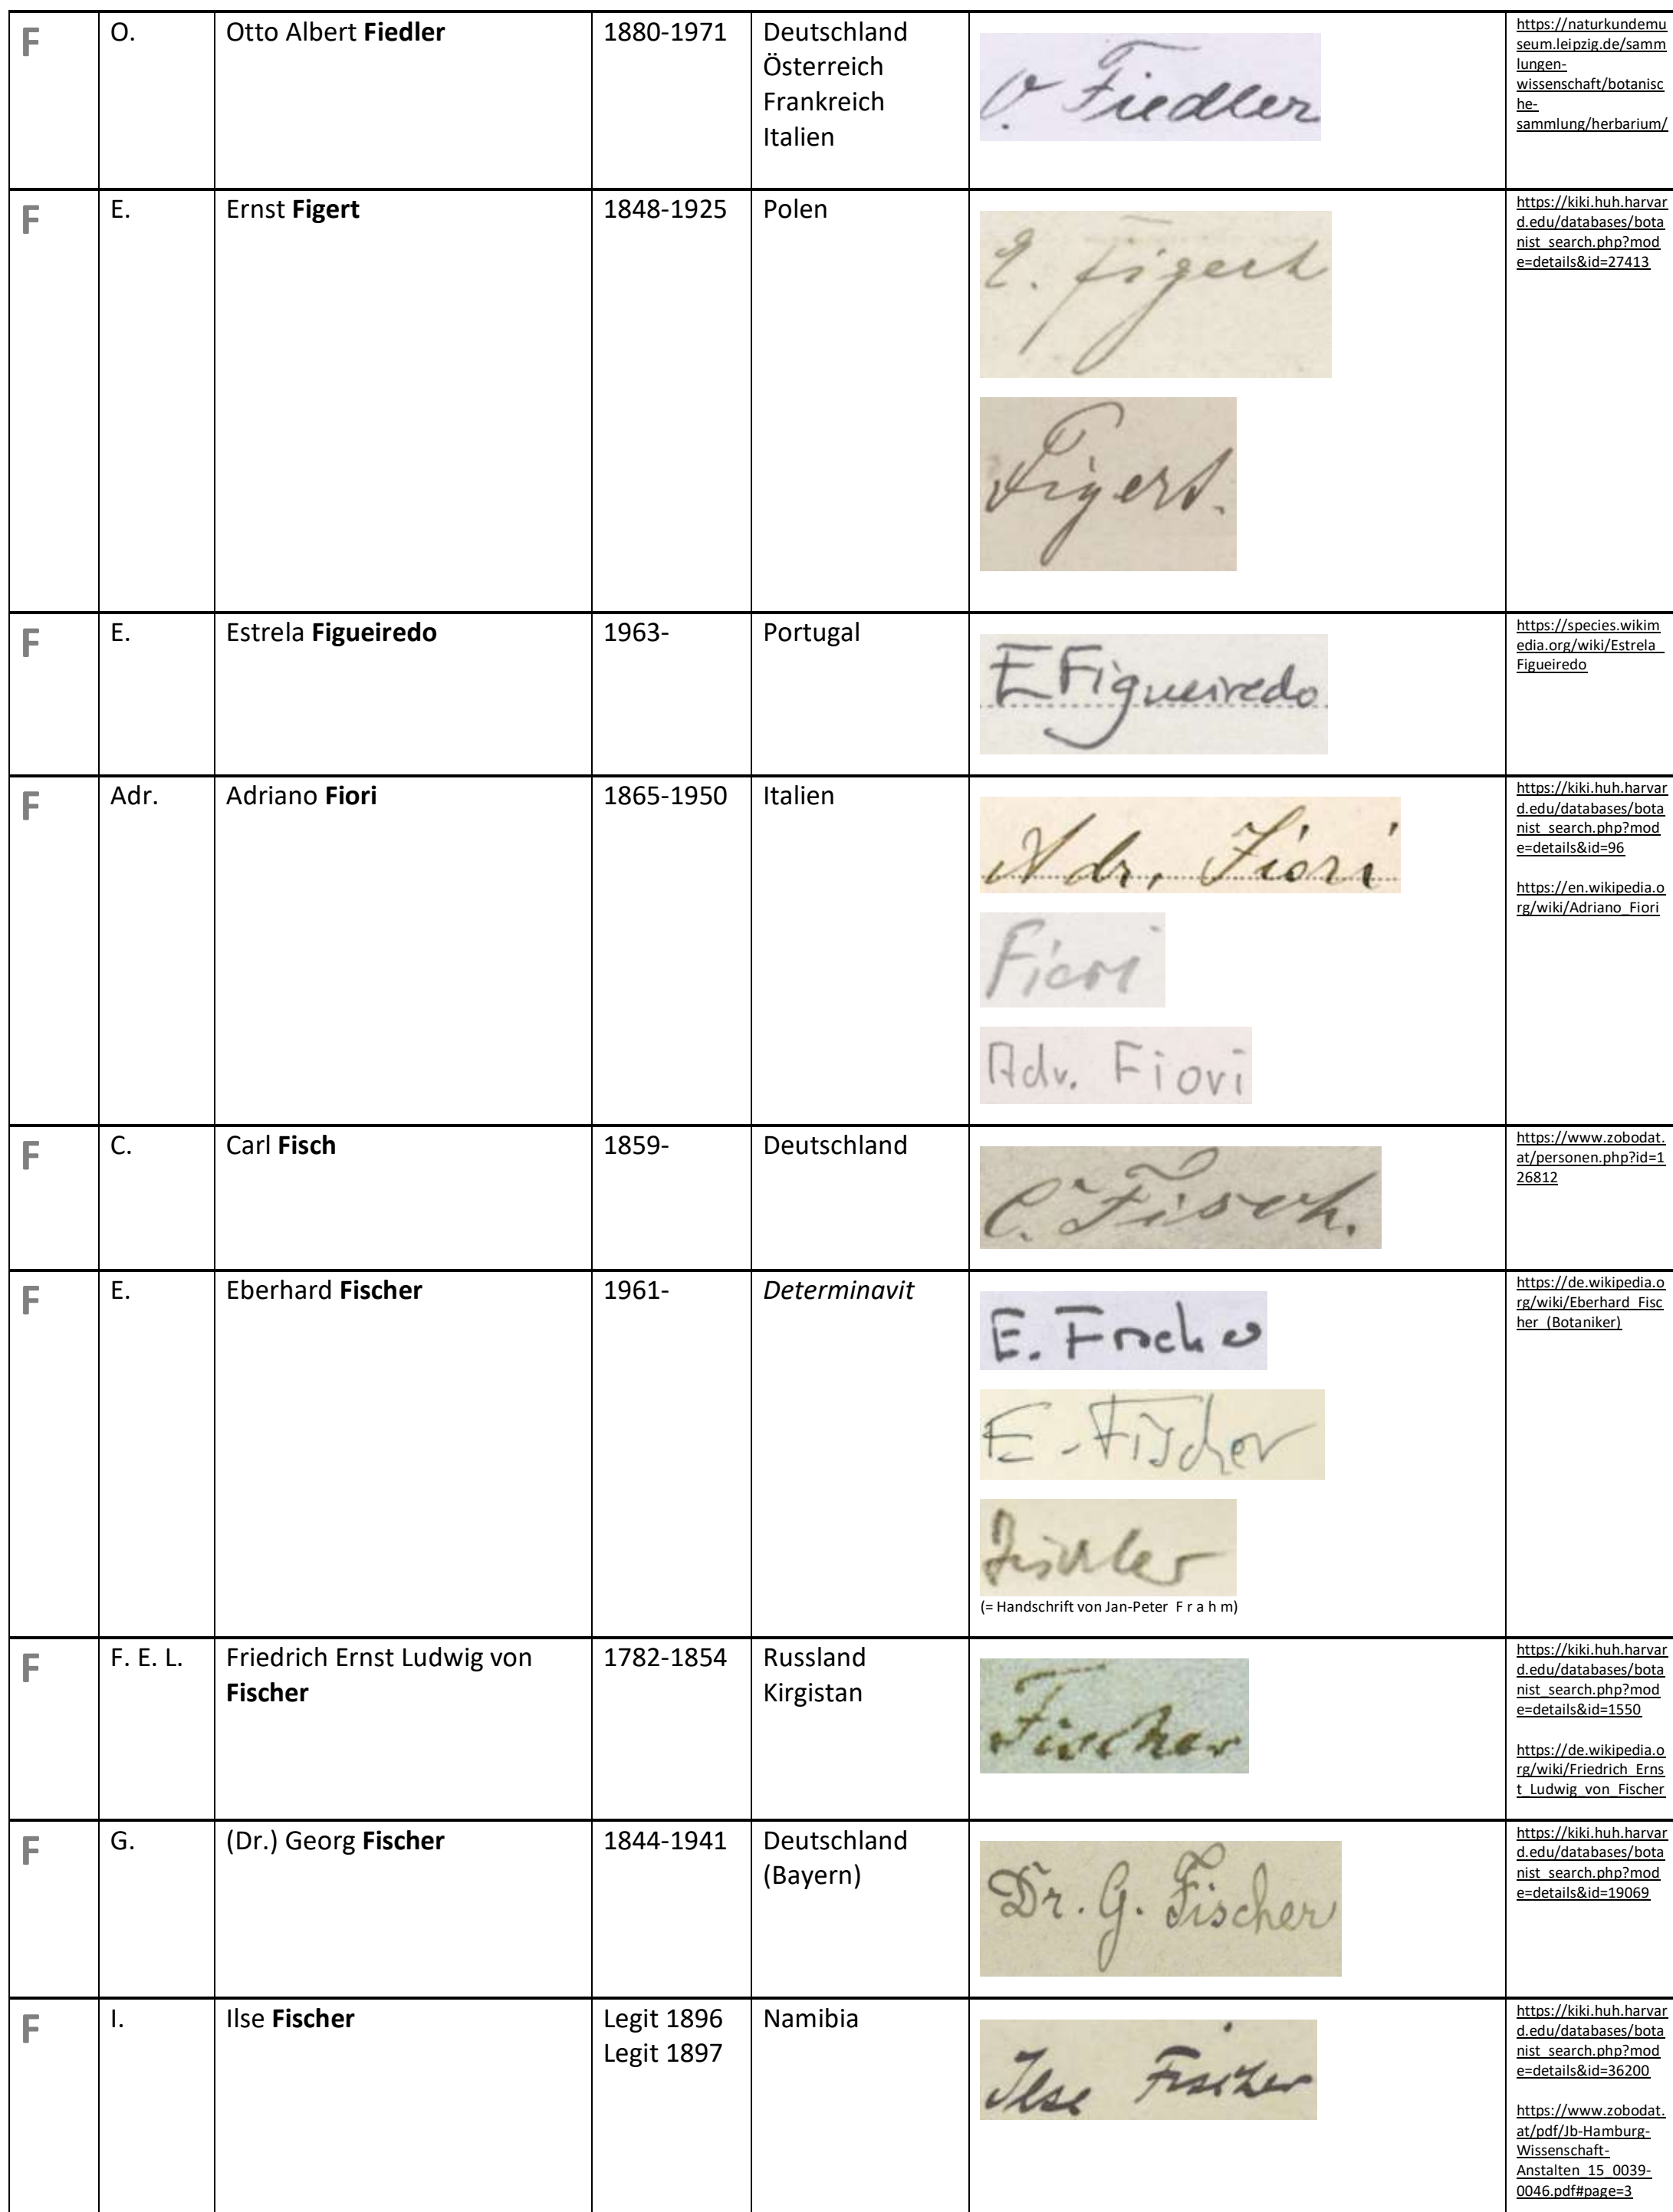 F O. Otto Albert Fiedler 1880-1971 Deutschland
Österreich
Frankreich
Italien
O. Fiedler
https://naturkundemu
seum.leipzig.de/samm
lungen-
wissenschaft/botanisc
he-
sammlung/herbarium/
F E. Ernst Figert 1848-1925 Polen
E. Figert
Figert.
https://kiki.huh.harvar
d.edu/databases/bota
nist_search.php?mod
e=details&id=27413
F E. Estrela Figueiredo 1963- Portugal
E Figueiredo
https://species.wikim
edia.org/wiki/Estrela_
Figueiredo
F Adr. Adriano Fiori 1865-1950 Italien
Adr. Fiori
Fiori
Adr. Fiori
https://kiki.huh.harvar
d.edu/databases/bota
nist_search.php?mod
e=details&id=96
https://en.wikipedia.o
rg/wiki/Adriano_Fiori
F C. Carl Fisch 1859- Deutschland
C. Fisch.
https://www.zobodat.
at/personen.php?id=1
26812
F E. Eberhard Fischer 1961- Determinavit
E. Fischer
E. Fischer
Fischer
(= Handschrift von Jan-Peter F r a h m)
https://de.wikipedia.o
rg/wiki/Eberhard_Fisc
her_(Botaniker)
F F. E. L. Friedrich Ernst Ludwig von
Fischer
1782-1854 Russland
Kirgistan
Fischer
https://kiki.huh.harvar
d.edu/databases/bota
nist_search.php?mod
e=details&id=1550
https://de.wikipedia.o
rg/wiki/Friedrich_Erns
t_Ludwig_von_Fischer
F G. (Dr.) Georg Fischer 1844-1941 Deutschland
(Bayern)
Dr. G. Fischer
https://kiki.huh.harvar
d.edu/databases/bota
nist_search.php?mod
e=details&id=19069
F I. Ilse Fischer Legit 1896
Legit 1897
Namibia
Ilse Fischer
https://kiki.huh.harvar
d.edu/databases/bota
nist_search.php?mod
e=details&id=36200
https://www.zobodat.
at/pdf/Jb-Hamburg-
Wissenschaft-
Anstalten_15_0039-
0046.pdf#page=3